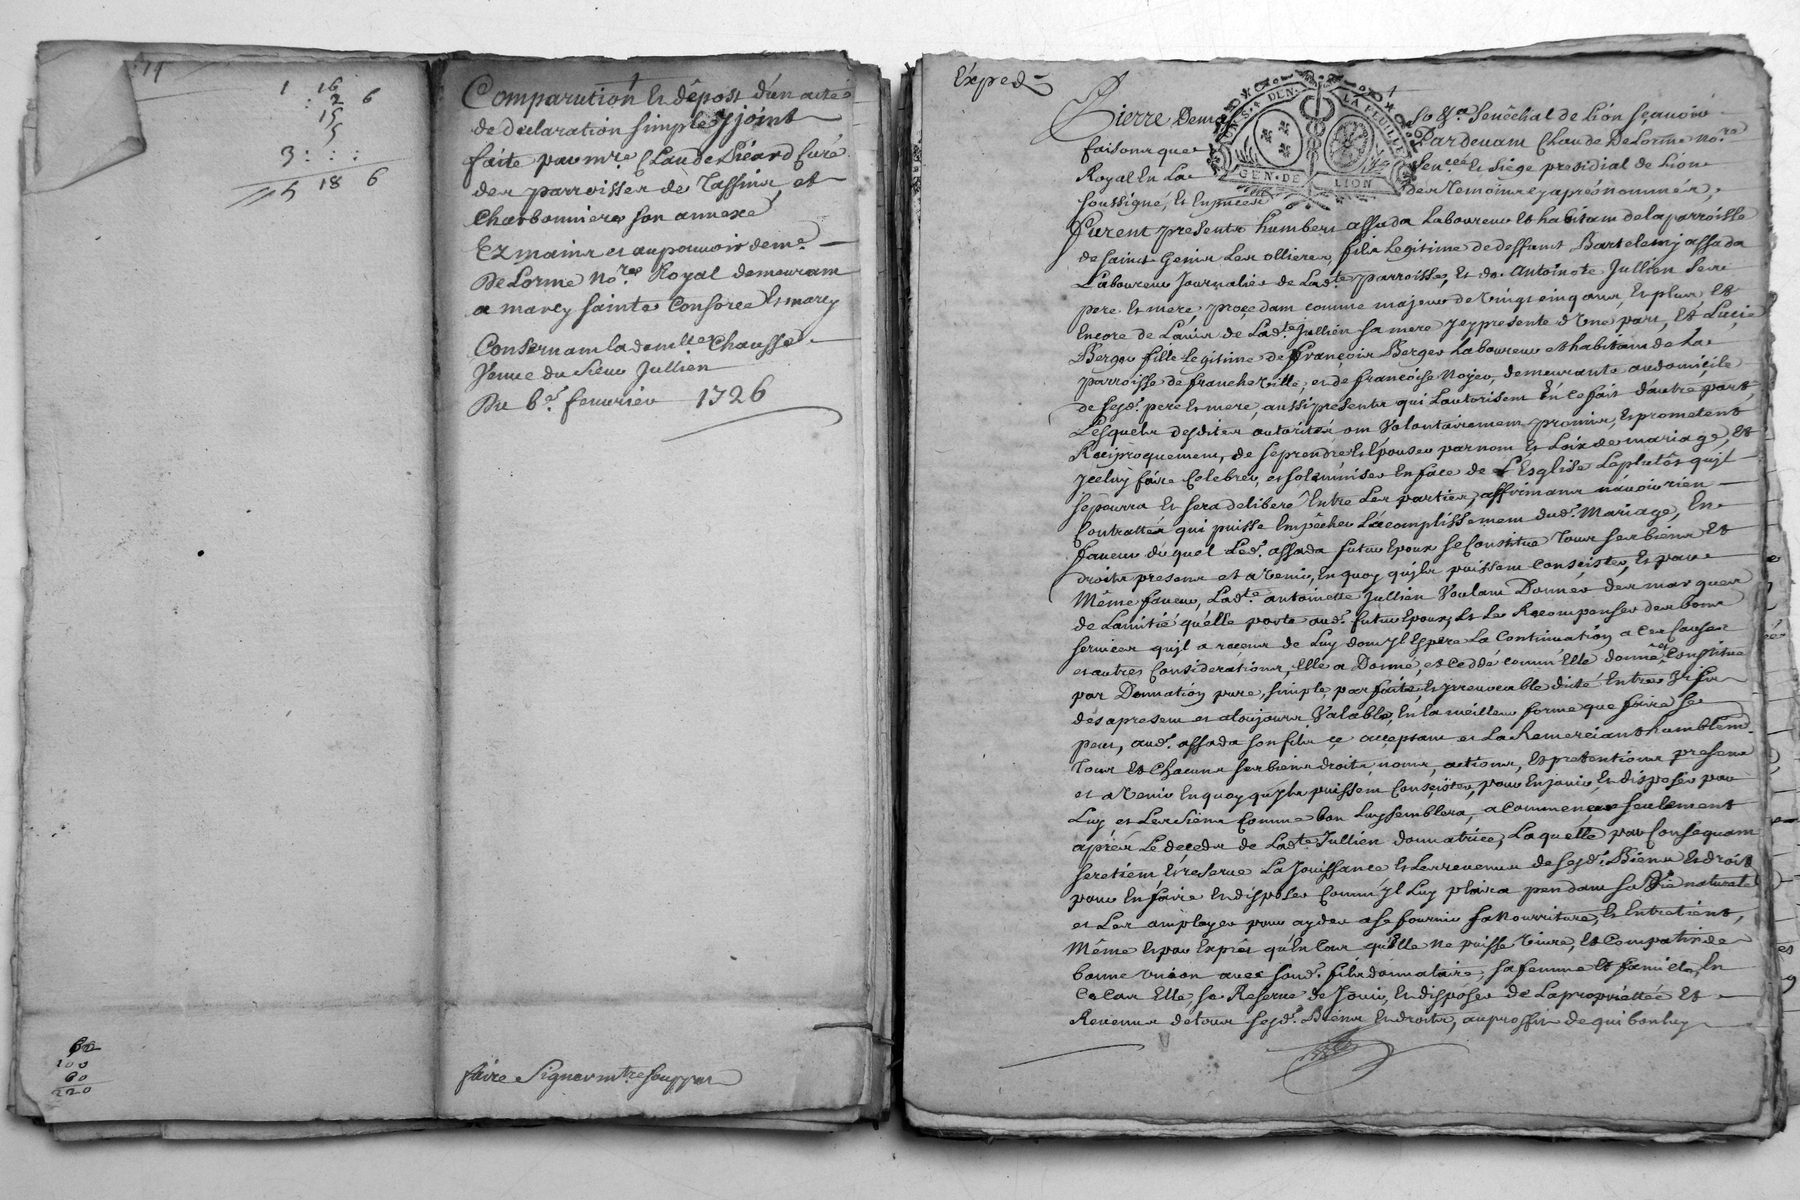 14
1 16
: 2 6
15
5
3 : : :
5 18 6
60
100
60
220
Comparution Et dêpost d'un acte
de declaration simple Cyjoint
faite par mre Claude Siéard Curé
des parroisses de Tassins, et
Charbonnieres son annexe,
Ez mains et au pouvoir de me
De Lorme nore Royal demeurant
a marcy sainte Consorce Et marcy
Consernant la demlle Chausse
Veuve du Sieur Jullien
Du 6e feuvrier 1726
faire Signer mtre souppat
Exped
GEN. DE LION
LA FEUILLE
DEN.
Pierre Deni So &ca Senêchal de Lion sçauoir
faisons que Pardeuant Claude DeLorme nore
Royal En La Sencée Et Siége presidial de Lion
soussigné, Et En presen des Temoins cy aprés nommés,
Furent presents humbert assada Laboureur Et habitant de la parroisse
de saint Genis Les ollieres, fils Legitime de deffunt Bartelemy assada
Laboureur Journalier de Ladte parroisse, Et de Antoinete Jullien Ses
pere Et mere, procedant comme majeur de vingt cinq ans, Et plus, Et
Encore de L'auis de Ladte Jullien sa mere Icy presente d'Une part, Et Lucie
Berger fille Legitime de François Berger Laboureur et habitant de La
parroisse de francheville, et de françoise Nojer, demeurante au domicile
de sesds pere Et mere, aussi presents qui L'autorisent En ce fait d'autre part,
Lesquels desdites autorités ont Volontairement promis, Et prometent
Reciproquement, de se prendre Et Epouser par nom Et Loix de mariage, Et
Iceluy faire Celebrer, et solemniser En face de L'Esglise Leplutôt qu'jl
se pourra Et sera deliberé Entre Les parties, affirmans n'auoir rien
Contratté qui puisse Empêcher L'acomplissement dudt Mariage, En
faueur du quel Ledt assada futur Epoux se Constitue Tous ses biens Et
droits presens et a Venir, En quoy qu'jls puissent Consister, Et par
Même faueur, Ladte antoinette Jullien Voulant Donner des marques
de Lamitié qu'elle porte audt futur Epoux, Et Le Recompenser des bons
seruices qu'jl a receus de Luy dont jl Espere La Continuation, a Ces Causes
et autres Considerations, Elle a Donné, et Ceddé comm'Elle donne et Constitue
par Donnation pure, simple, parfaite, Et jrreuocable dicté Entre Vifs
dés apresent et a toujours Valable, En la meilleur forme que faire se
peut, audt assada son fils çe acçeptant et La Remerciant humblemt
Tous Et Chacuns ses biens droits, noms, actions, Et pretentions presens
et a Venir En quoy qu'jls puissent Consister, pour En jouir, Et disposer par
Luy et Les Siens Comme bon Luy semblera, a Commencer seulement
aprés Le deceds de Ladte Jullien donnatrice, Laquelle par Consequant
se retient Et reserue La Jouissance Et Les reuenus de sesds Biens Et droits
pour En faire Et disposer Comm'jl Luy plaira pendant sa Vie naturele
et Les amployer pour ayder a se fournir sa Nourriture, Et Entretient,
Même Et par Exprés qu'En Cas qu'Elle ne puisse Viure, Et Compatir de
bonne Vnion auec sondt fils donnataire, sa femme Et famille, En
Ce Cas Elle, se Reserue de Jouir, Et disposer de La propriettée Et
Reuenus de tous sesds Biens Et droits, au proffit de qui bon luy